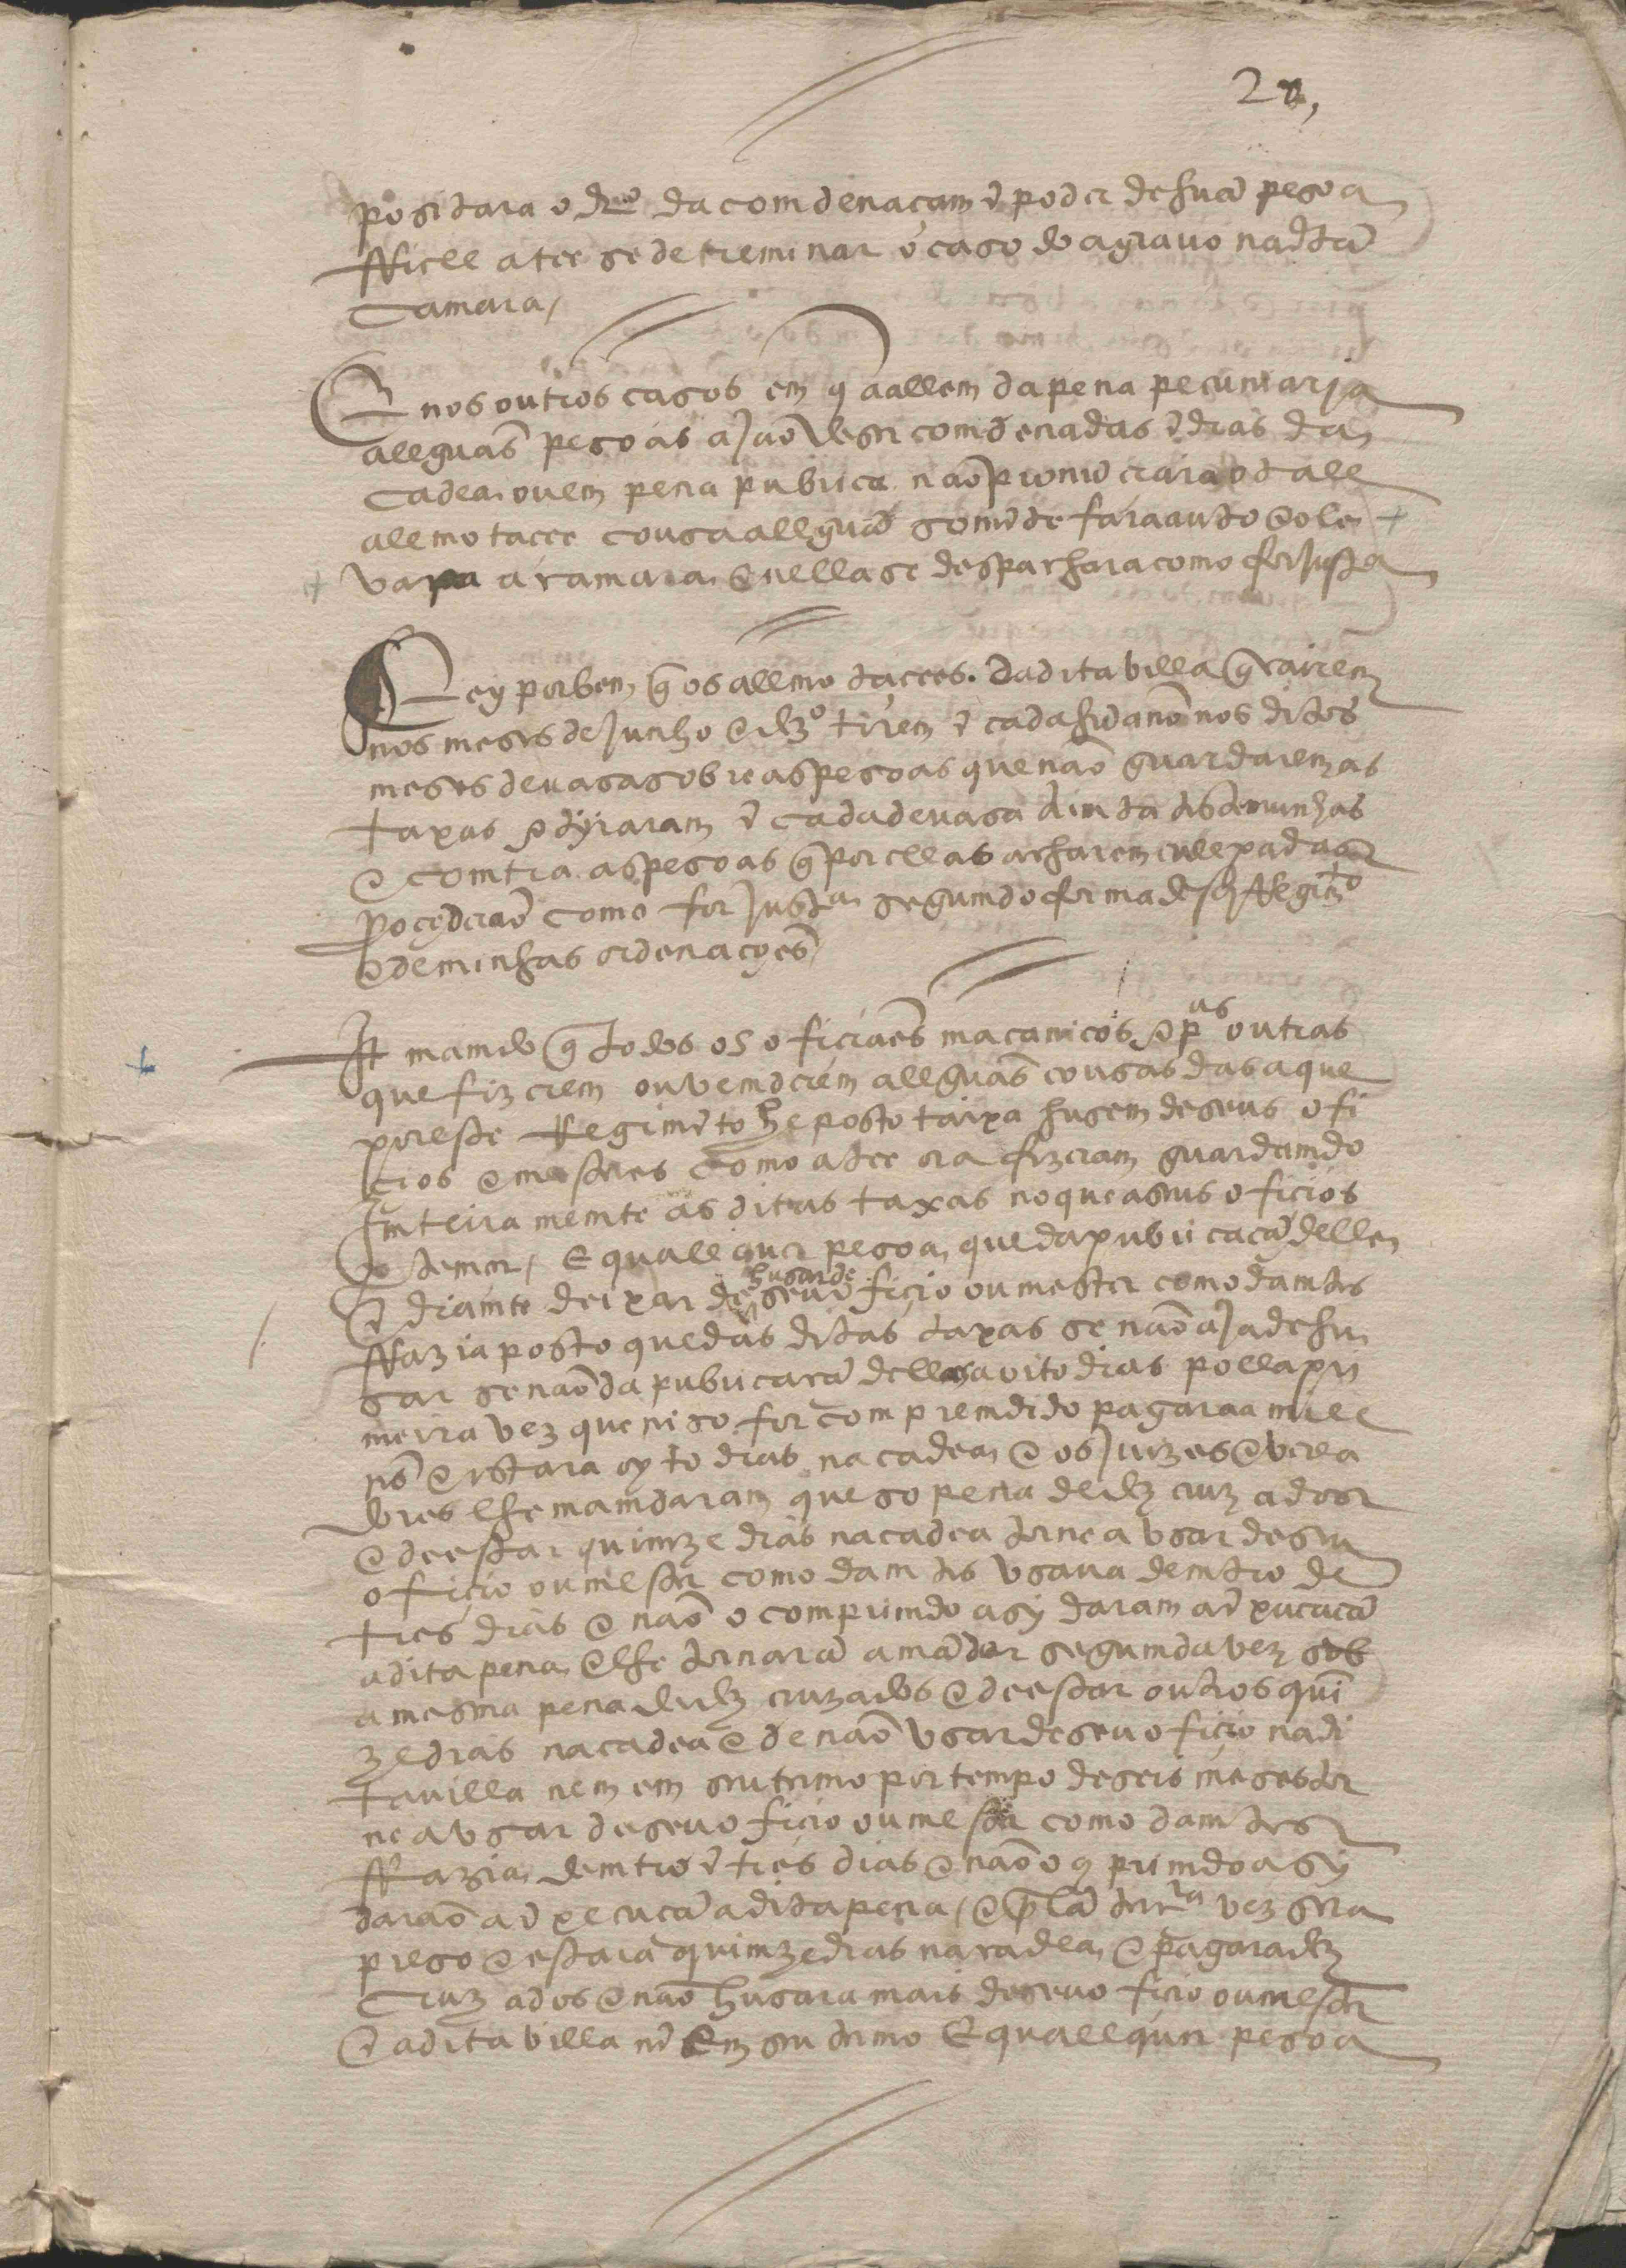 20,
positara o drº da comdenaçam ẽ poder de huã pesoa
ffiell atee se detreminar o caso do agravo na dta
camara /
E nos outros casos em q̃ aallem da pena pecuniarja
allguas pesoas ajaõ de ser comdenadas ẽ dias da
cadea ou em pena pubrica naõ pronũciara o tall
allmotacee cousa allguã somẽte fara auto e o le
vara a camara e nella se despachara como for justa
Ey por bem q̃ os allmotacees da dita villa q̃ cairem
nos meses de Junho e dzº tirem ẽ cada huũ anno nos ditos
meses devasa sobre as pesoas que naõ guardarem as
taxas e tiraram ẽ cada devasa trinta testemunhas
e comtra as pesoas q̃ por ellas acharem cullpadas
procederaõ como for justa segumdo forma deste Regimto
e de minhas ordenações /
It mamdo q̃ todos os oficiaes macanicos e pas outras
que fizerem ou vemderem allguas cousas das a que
por este Regimẽto he posto taixa husem de seus ofi
cios e mesteres como atee ora fizeram guardamdo
Imteiramemte as ditas taxas no que a seus oficios
tocar / E quallquer pesoa que da pubricaçã delle
ẽ diamte deixar de husar de seu oficio ou mester como damtes
ffazia posto que das ditas taxas se naõ aja de hu
sar senaõ da pubricaçã dellas a oito dias polla pri
meira vez que niso for comprendido pagara a mill
rs e estara oyto dias na cadea e os Juizes e verea
dores lhe mamdaram que so pena de dez cruzados
e de estar quimze dias na cadea torne a usar de seu
oficio ou mester como damtes usava demtro de
tres dias e naõ o comprimdo asy daram a ẽxucuçã
a dita pena e lhe tornarã a mãdar segumda vez sob
a mesma pena de dez cruzados e de estar outros quĩ
ze dias na cadea e de naõ usar de seu oficio na di
ta villa nem em seu termo por tempo de seis meses tor
ne a usar de seu oficio ou mester como damtes
ffazia demtro ẽ tres dias e naõ o cõprimdo asy
daraõ a ẽxecuçã a dita pena / e pla terra vez sera
preso e estara quimze dias na cadea e pagara dez
cruzados e naõ husara mais de seu oficio ou mester
ẽ a dita villa nẽ em seu termo E quallquer pesoa